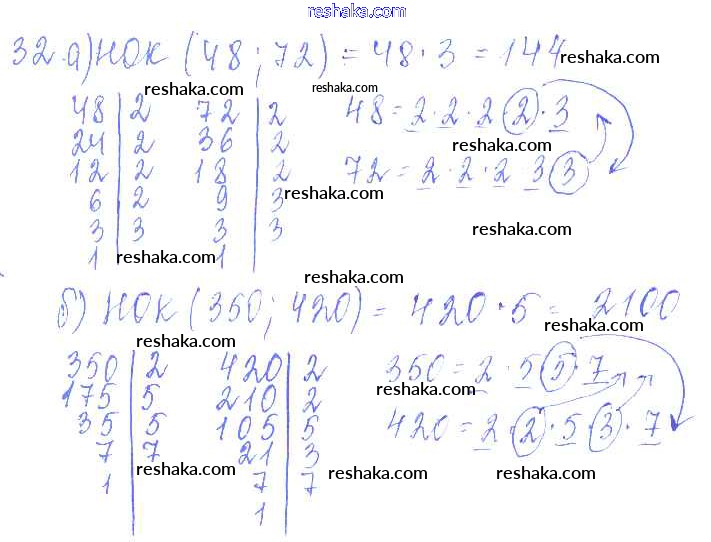 reshaka.com
32.а) НОК (48; 72) = 48 · 3 = 144 reshaka.com
reshaka.com reshaka.com
48 | 2 72 | 2 48 = 2 · 2 · 2 · 2 · 3
24 | 2 36 | 2 reshaka.com
12 | 2 18 | 2 72 = 2 · 2 · 2 3 3
6 | 2 9 | 3 reshaka.com
3 | 3 3 | 3 reshaka.com
1 | 1 | reshaka.com
reshaka.com
б) НОК (350; 420) = 420 · 5 = 2100
reshaka.com reshaka.com
350 | 2 420 | 2 350 = 2 · 5 5 · 7
175 | 5 210 | 2 reshaka.com
35 | 5 105 | 5 420 = 2 · 2 · 5 3 · 7
7 | 7 21 | 3
reshaka.com reshaka.com reshaka.com
1 | 7 | 7
1 |